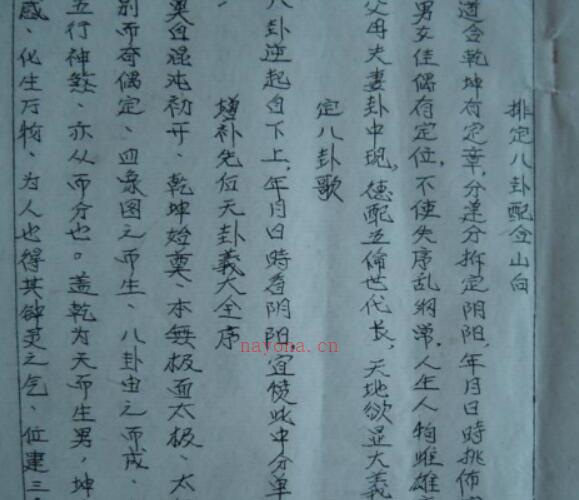 排定八卦配合山向
道合乾坤有定章,分差分拆定阴阳,年月日時挑佈
男女佳偶有定位,不使失序乱纲常,人生人物雌雄
父母夫妻卦中现,德配五倫世代长,天地欲显大義
定八卦歌
八卦逆起自下上,年月日時看阴阳,宜愤此中分单
增补先后天卦義大全序
奠自混沌初开、乾坤始奠、本無极而太极、太
别而奇偶定、四象图之而生、八卦由之而成、
五行神煞、亦从而分也。盖乾为天而生男,坤
感、化生万物、为人也得其钟灵之气、位建三
nayona.cn